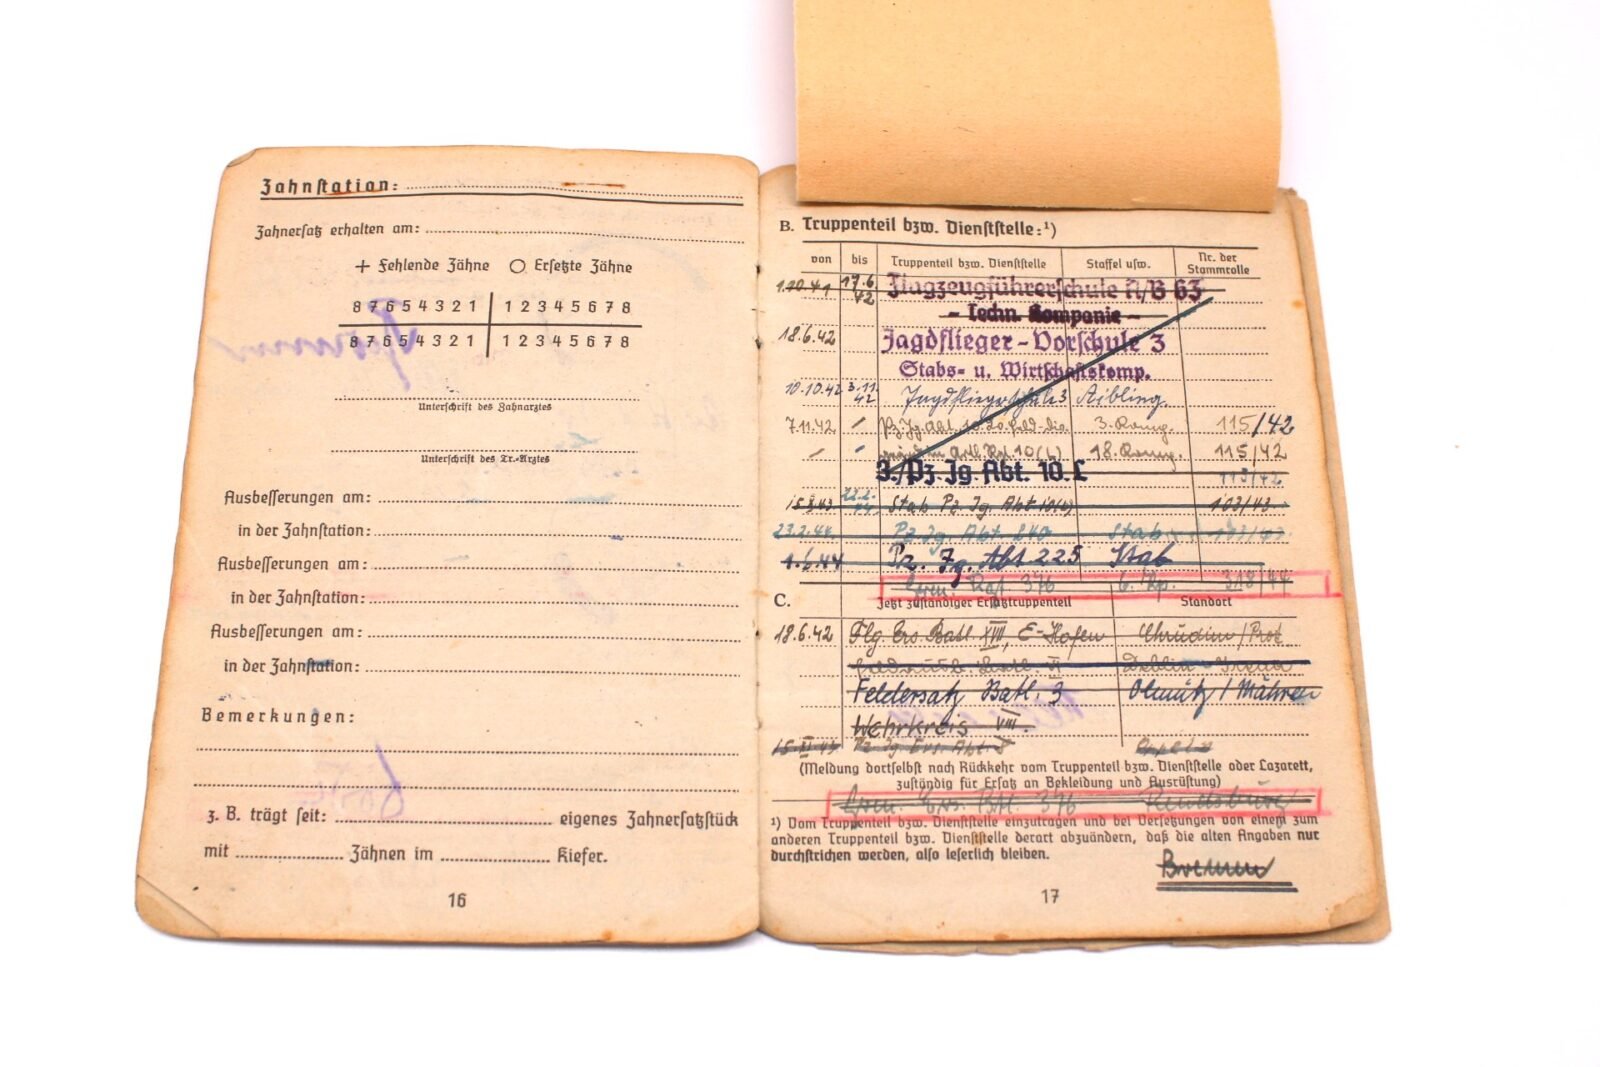 Zahnstation:
Zahnersatz erhalten am:
+ Fehlende Zähne ○ Ersetzte Zähne
8 7 6 5 4 3 2 1 1 2 3 4 5 6 7 8
8 7 6 5 4 3 2 1 1 2 3 4 5 6 7 8
Unterschrift des Zahnarztes
Unterschrift des Tr.-Arztes
Ausbesserungen am:
in der Zahnstation:
Ausbesserungen am:
in der Zahnstation:
Ausbesserungen am:
in der Zahnstation:
Bemerkungen:
z. B. trägt seit: eigenes Zahnersatzstück
mit Zähnen im Kiefer.
16
B. Truppenteil bzw. Dienststelle:¹)
von bis Truppenteil bzw. Dienststelle Staffel usw. Nr. der Stammrolle
1.10.41 17.6.42 Flugzeugführerschule A/B 63
- Techn. Kompanie -
18.6.42 Jagdflieger-Vorschule 3
Stabs- u. Wirtschaftskomp.
10.10.42 3.11.42 Jagdfliegerschule 3 Aibling.
7.11.42 3. 115/42
18. 115/42
3./Pz. Jg. Abt. 10. L 115/42
Stab Pz. Jg. Abt 10(L) 103/43
23.2.44. Pz. Jg. Abt. Stab
1.6.44 Pz. Jg. Abt 225 Stab
Gren. 376 6. Kp. 318/44
C. Jetzt zuständiger Ersatztruppenteil Standort
18.6.42 Flg. Ers. Batl. XVII, E-Hofen Chrudim / Prot
Feldersatz Batl. 3 Olmütz / Mähren
Wehrkreis VIII.
Pz. Jg. Ers. Abt. 8
(Meldung dortselbst nach Rückkehr vom Truppenteil bzw. Dienststelle oder Lazarett,
zuständig für Ersatz an Bekleidung und Ausrüstung)
Gren. Ers. Btl. 376 Rendsburg
¹) Vom Truppenteil bzw. Dienststelle einzutragen und bei Versetzungen von einem zum
anderen Truppenteil bzw. Dienststelle derart abzuändern, daß die alten Angaben nur
durchstrichen werden, also leserlich bleiben.
Bremen
17